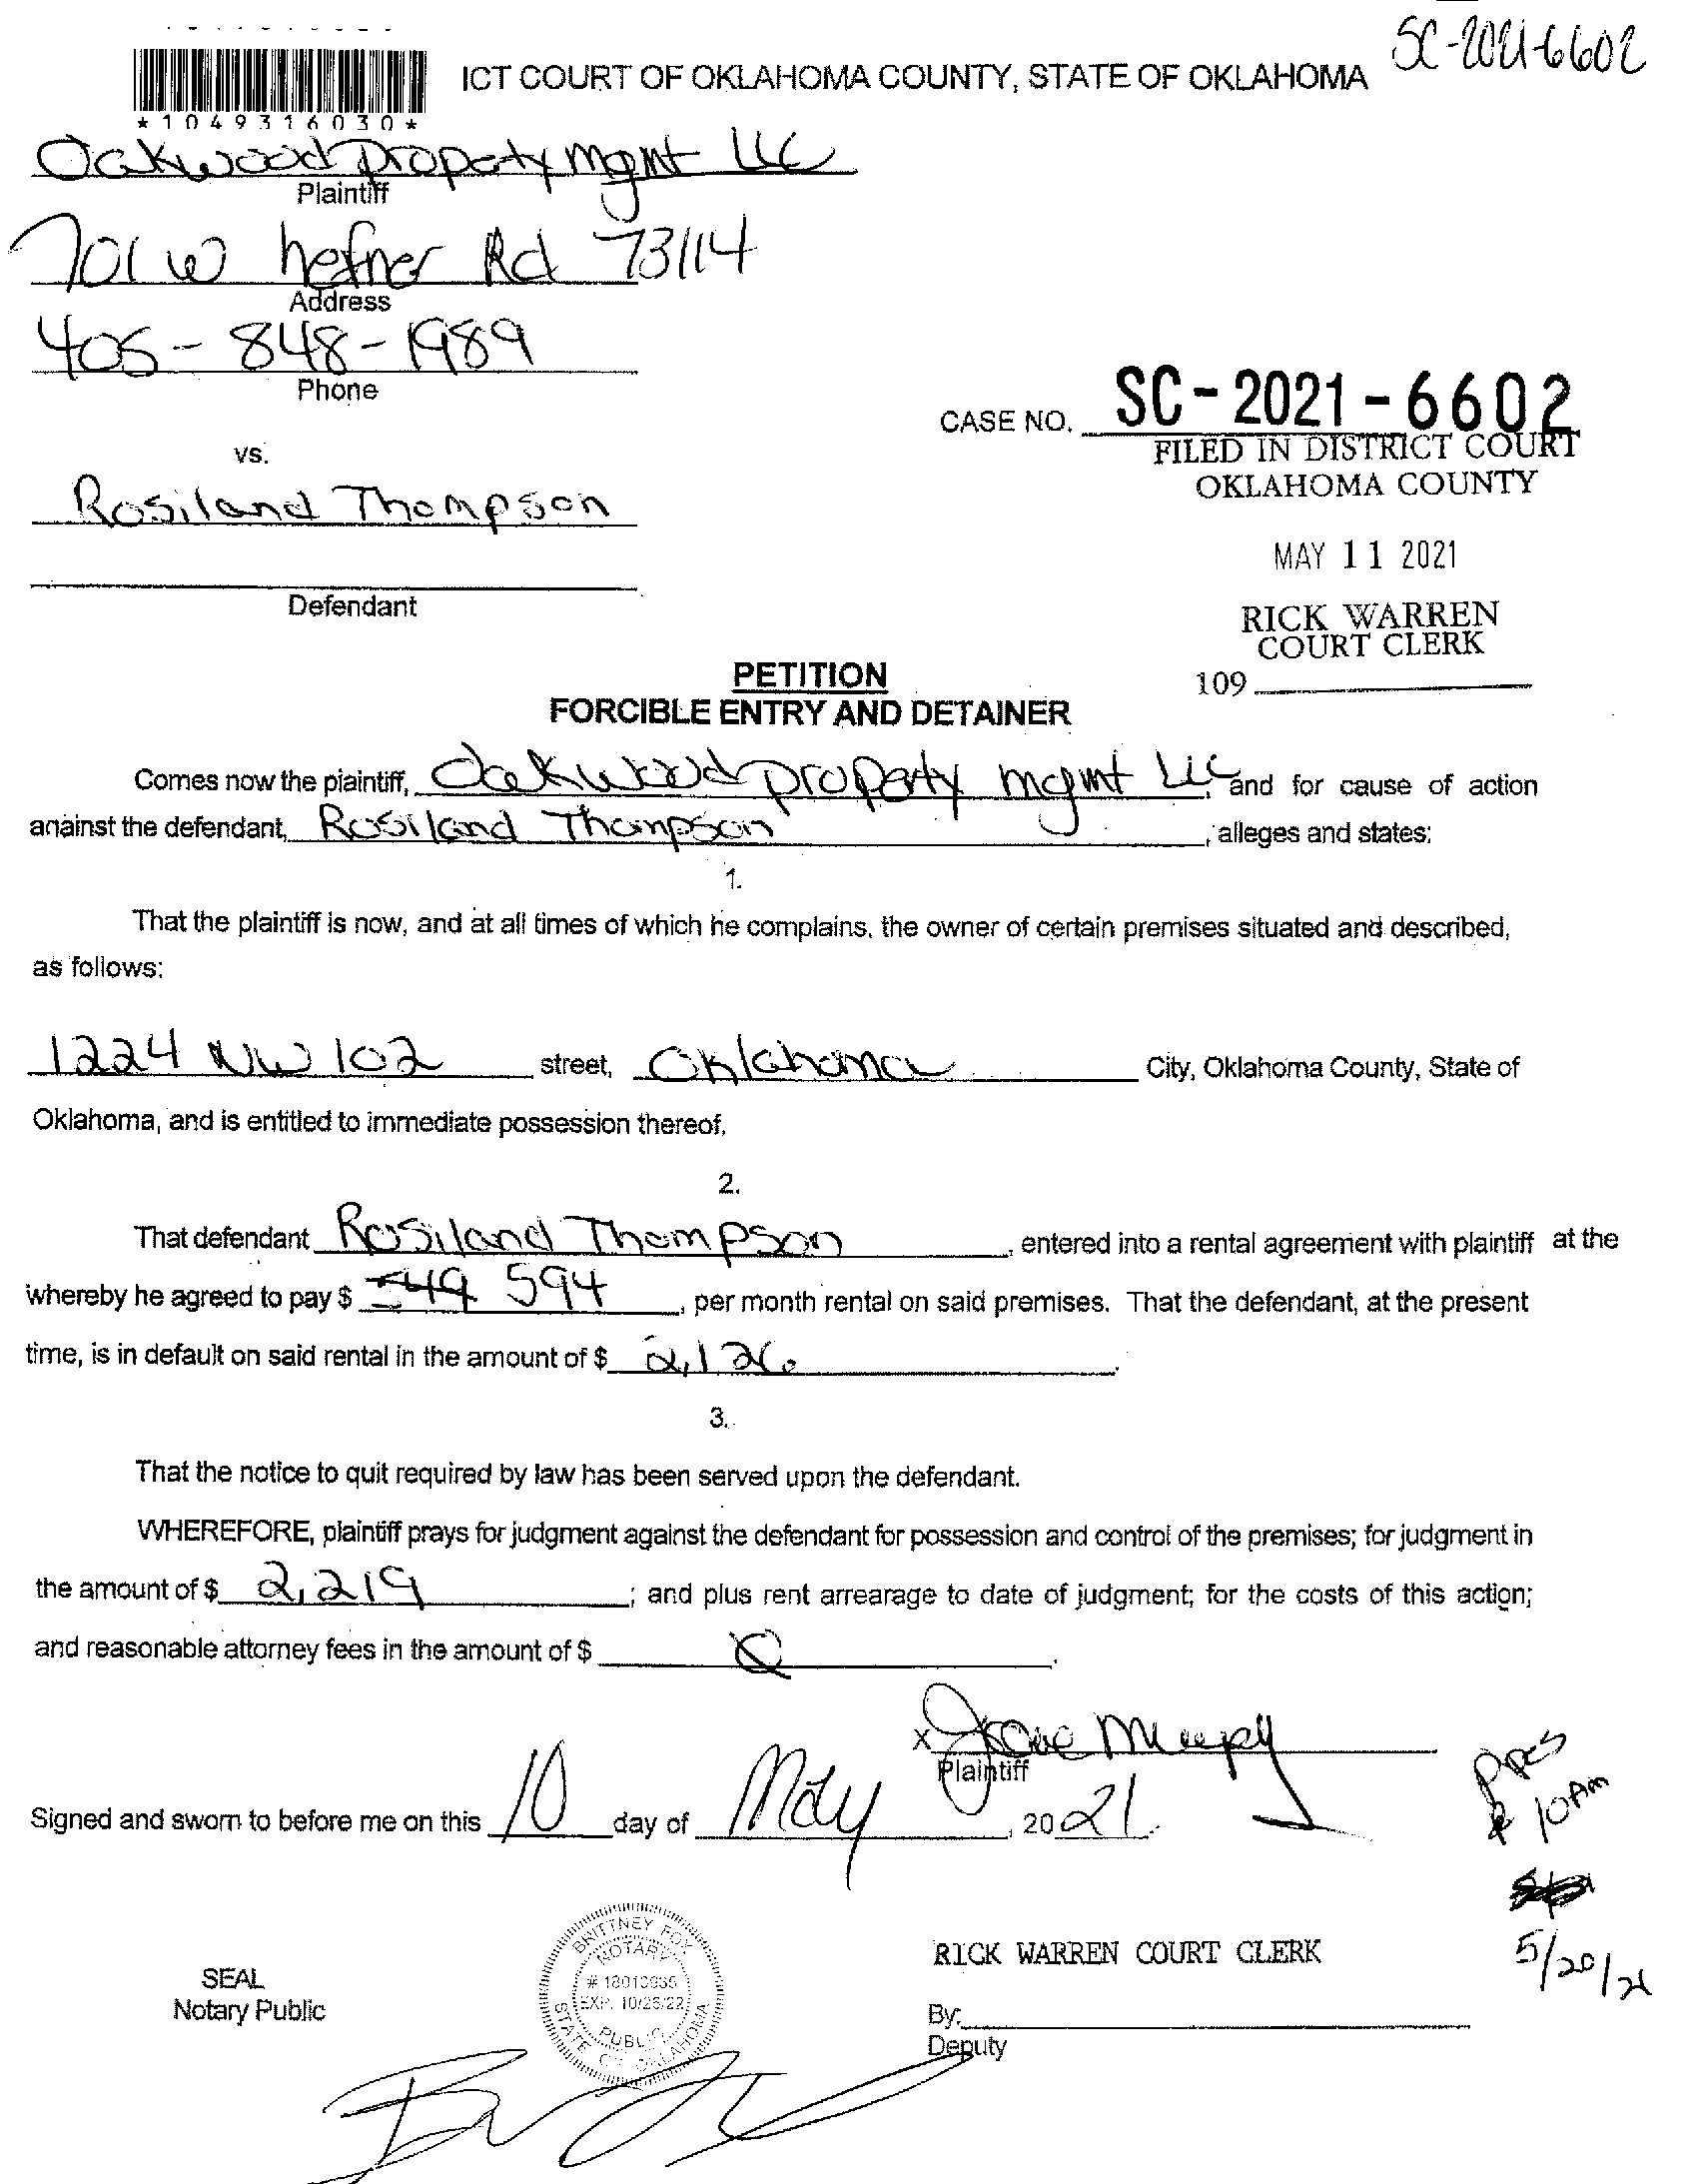 SC-2021-6602
ICT COURT OF OKLAHOMA COUNTY, STATE OF OKLAHOMA
*1049316030*
Oakwood Property mgmt LLC
Plaintiff
701 W hefner Rd 73114
Address
405-848-1989
Phone
CASE NO. SC-2021-6602
FILED IN DISTRICT COURT
OKLAHOMA COUNTY
vs.
Rosiland Thompson
MAY 11 2021
Defendant
RICK WARREN
COURT CLERK
109
PETITION
FORCIBLE ENTRY AND DETAINER
Comes now the plaintiff, Oakwood property mgmt LLC, and for cause of action
against the defendant, Rosiland Thompson, alleges and states:
1.
That the plaintiff is now, and at all times of which he complains, the owner of certain premises situated and described,
as follows:
1224 NW 102 street, Oklahoma City, Oklahoma County, State of
Oklahoma, and is entitled to immediate possession thereof.
2.
That defendant Rosiland Thompson, entered into a rental agreement with plaintiff at the
whereby he agreed to pay $ 549 594, per month rental on said premises. That the defendant, at the present
time, is in default on said rental in the amount of $ 2,126.
3.
That the notice to quit required by law has been served upon the defendant.
WHEREFORE, plaintiff prays for judgment against the defendant for possession and control of the premises; for judgment in
the amount of $ 2,219; and plus rent arrearage to date of judgment; for the costs of this action;
and reasonable attorney fees in the amount of $ 0.
x
Plaintiff
Signed and sworn to before me on this 10 day of May, 2021.
10 AM
5/20/21
BRITTNEY FOX
NOTARY
EXP. 10/26/22
PUBLIC
STATE OF OKLAHOMA
SEAL
Notary Public
RICK WARREN COURT CLERK
By:
Deputy